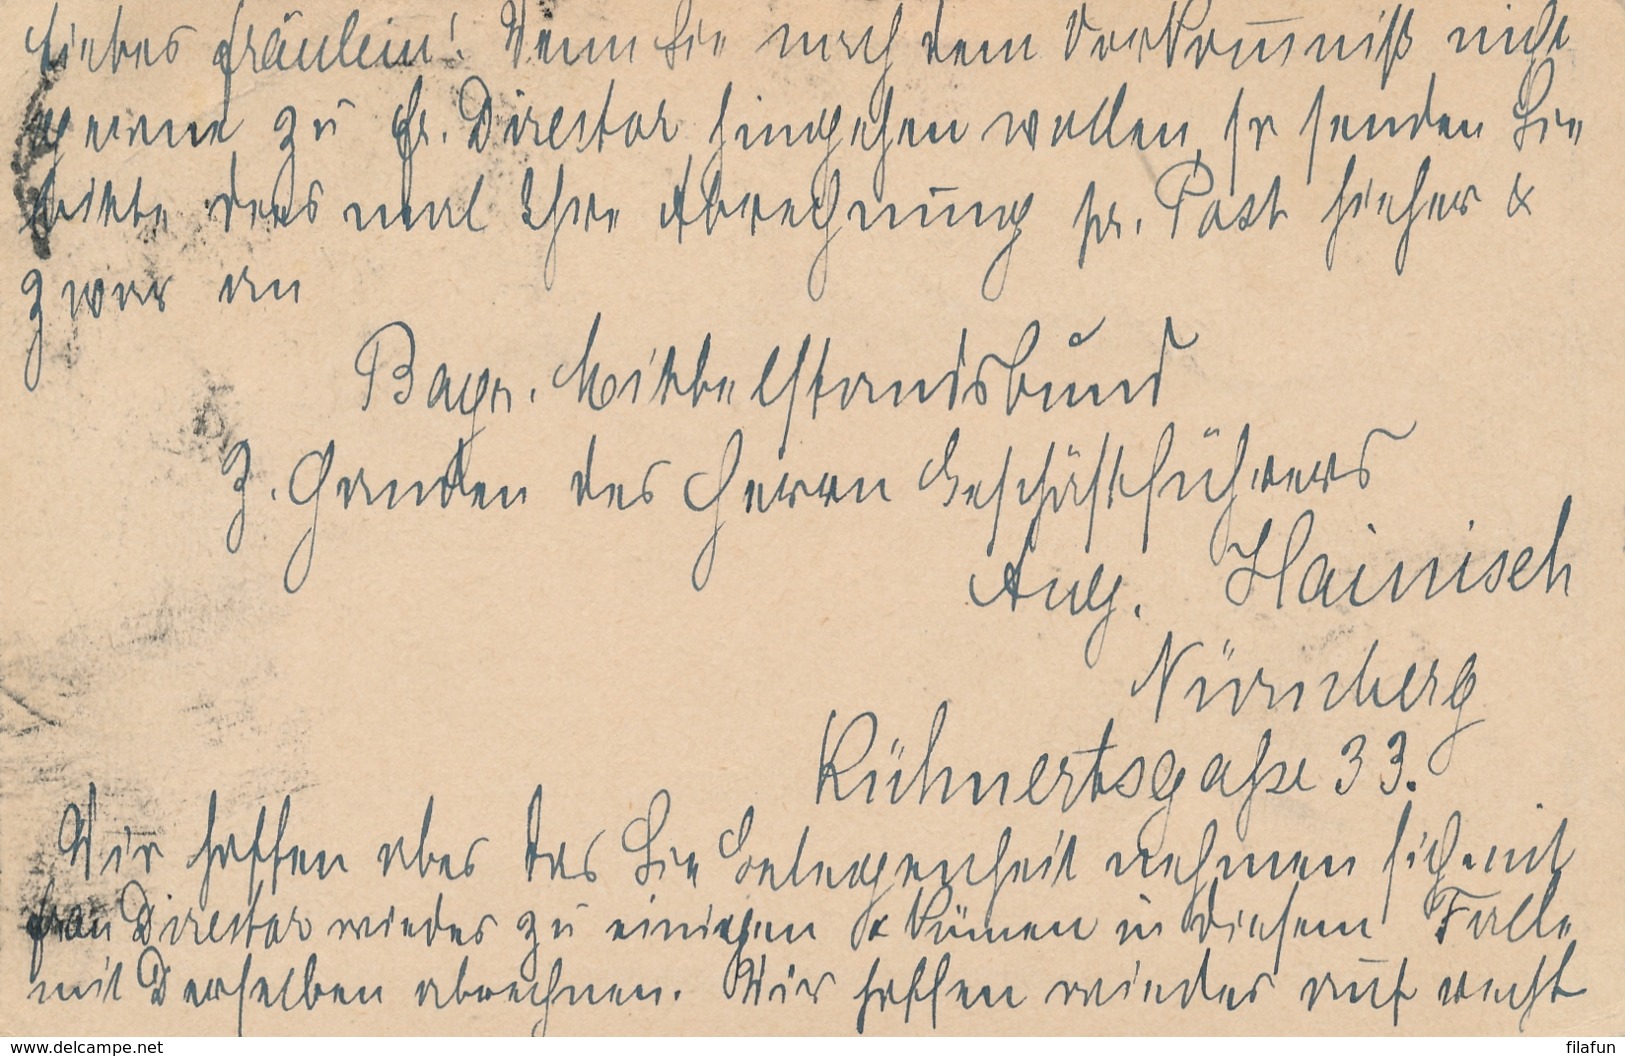 Liebes Fräulein! Wenn Sie nach dem Vorkom̅niß nicht
gerne zu Fr. Director hingehen wollen, so senden Sie
bitte das mal Ihre Abrechnung pr. Post hieher &
zwar an
Bayr. Mittelstandsbund
z. Handen des Herrn Geschäftsführers
Aug. Hainisch
Nürnberg
Kühnertsgaße 33.
Wir hoffen aber das Sie Gelegenheit nehmen sich mit
Frau Director wieder zu einigen & kön̅en in diesem Falle
mit Derselben abrechnen. Wir hoffen wieder auf recht
www.delcampe.net
filafun